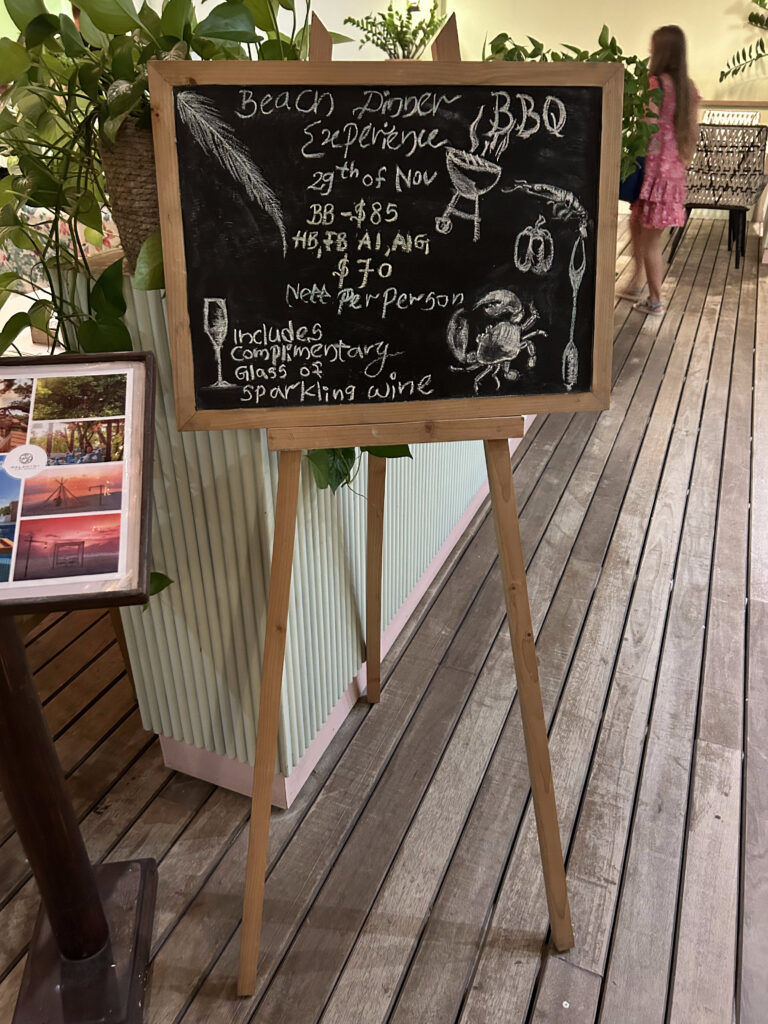 Beach Dinner
BBQ
Experience
29th of Nov
BB-$85
HB, FB AI, AIG
$70
Nett Per Person
Includes
Complimentary
Glass of
Sparkling wine